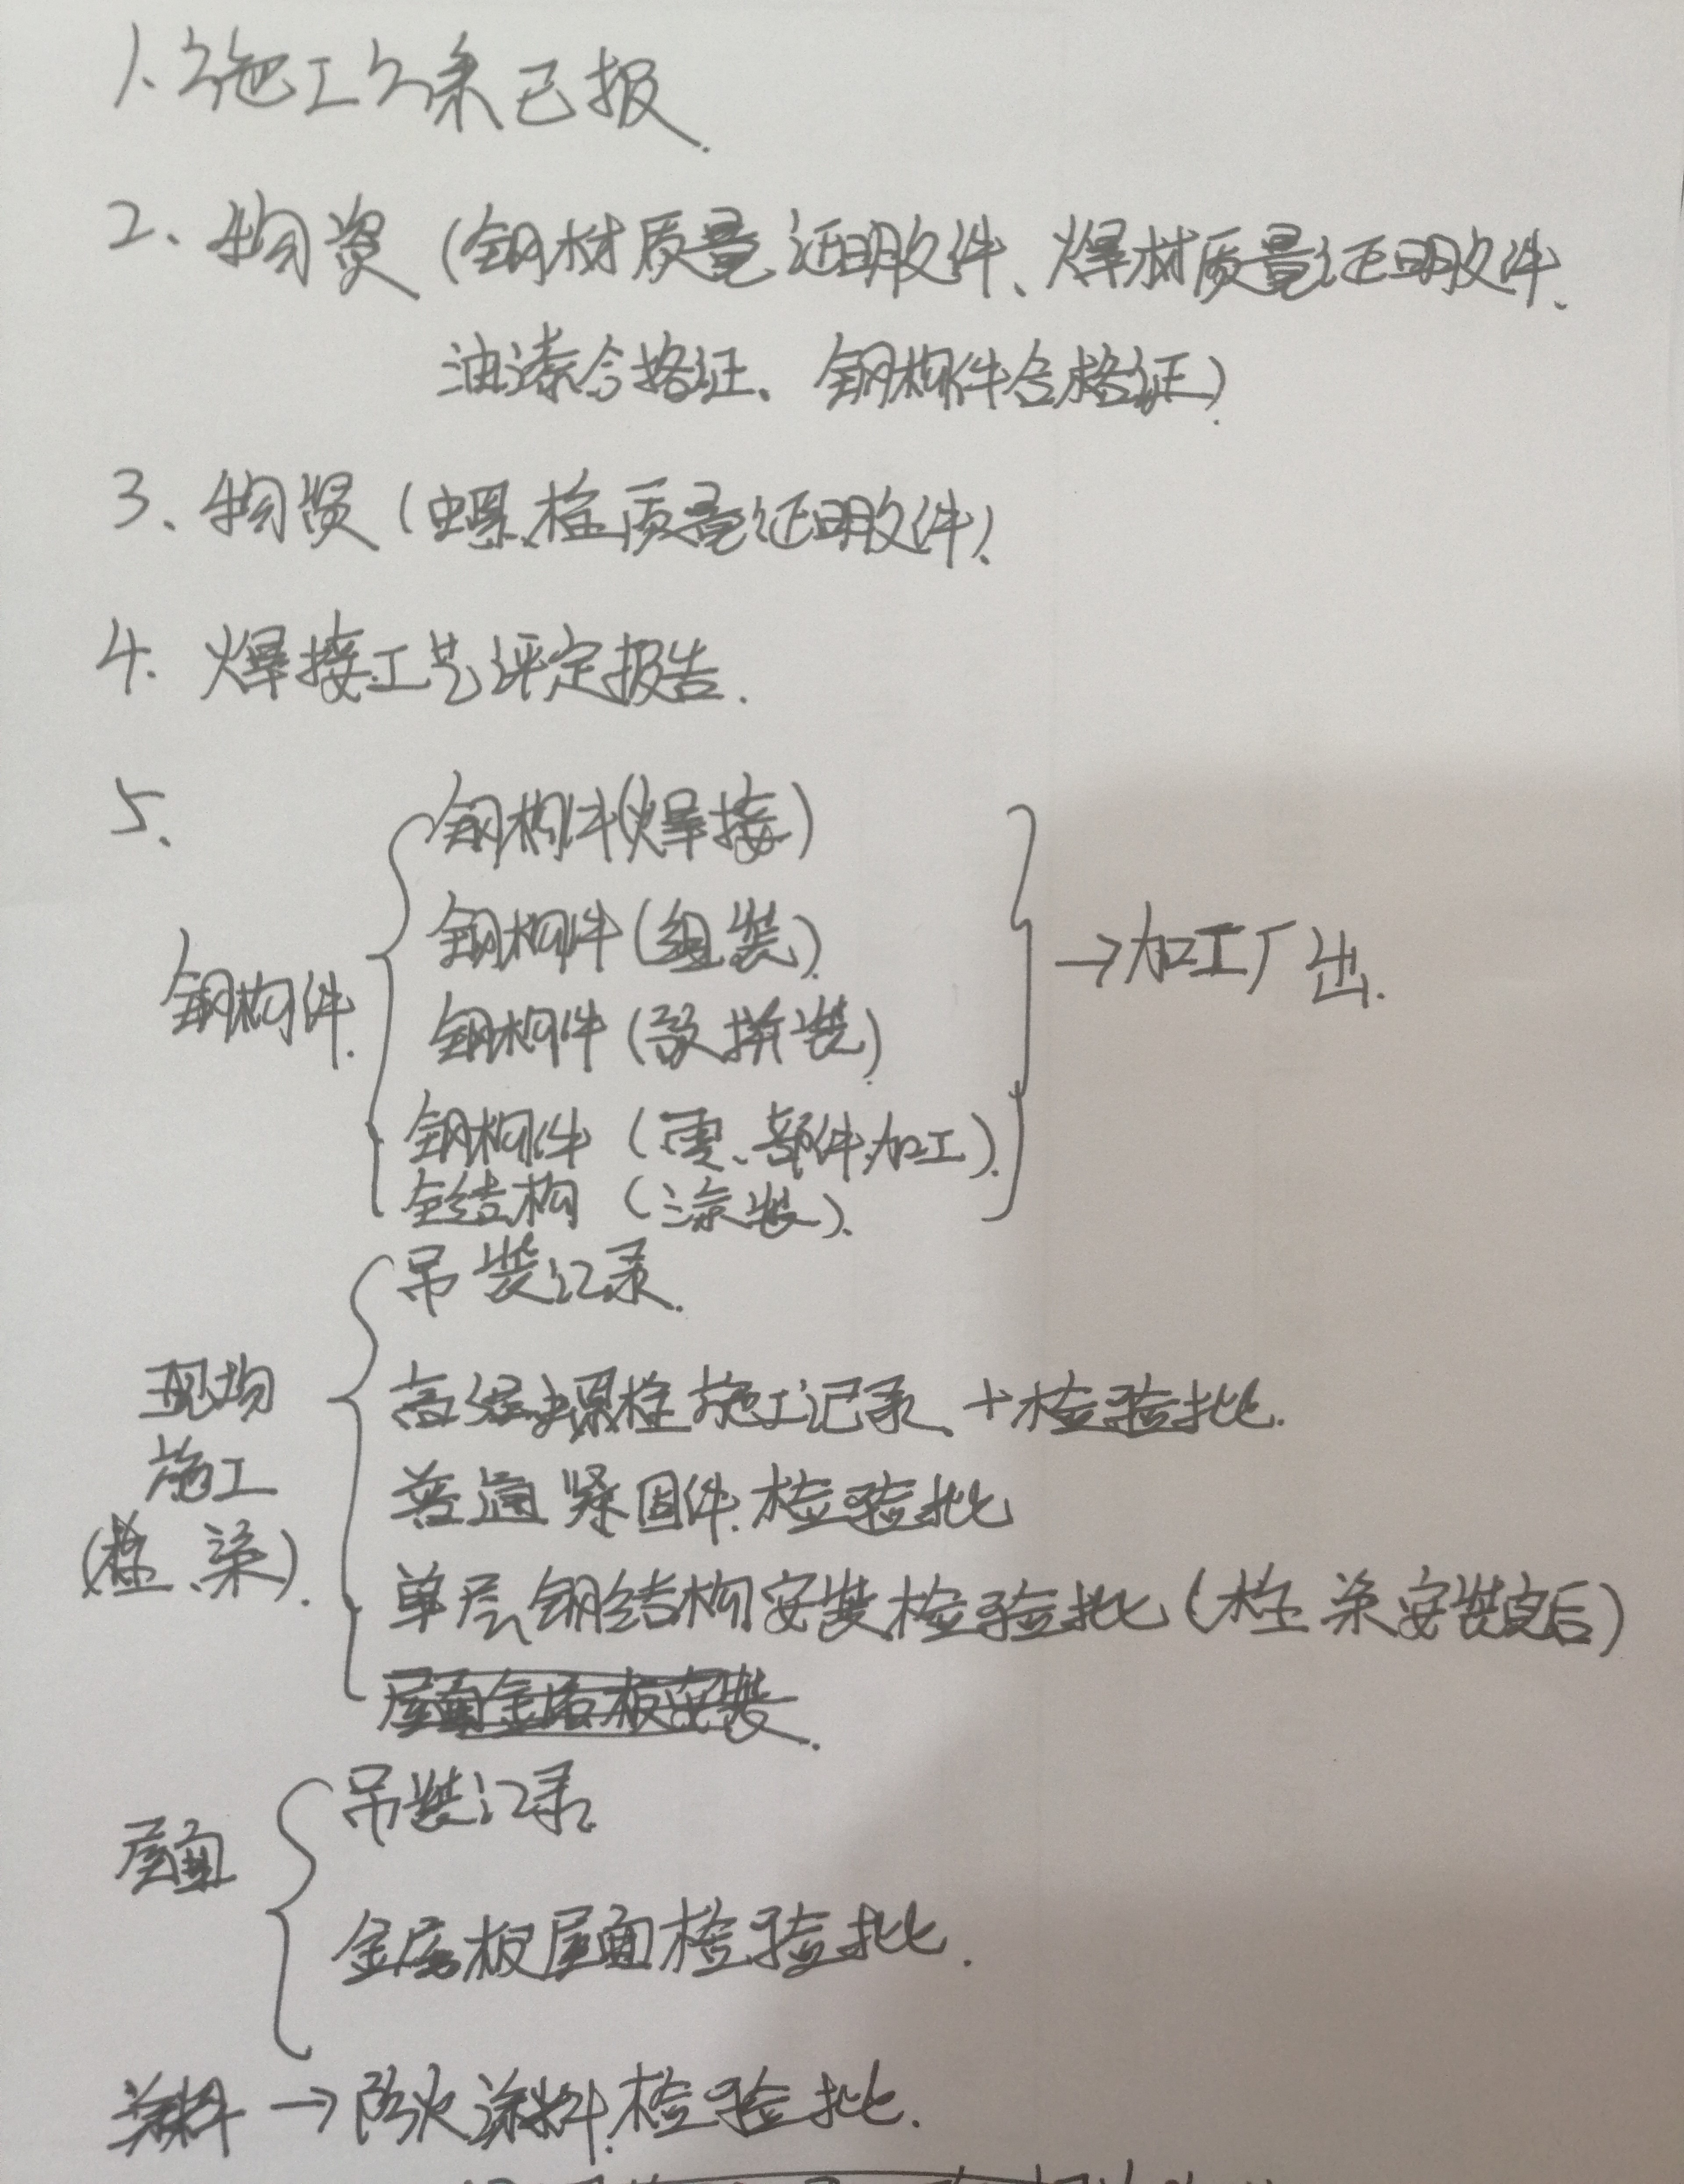 1、施工方案已报.
2、物资（钢材质量证明文件、焊材质量证明文件、
油漆合格证、钢构件合格证）.
3、物资（螺栓质量证明文件）、
4. 焊接工艺评定报告.
5、
钢构件（焊接）
钢构件（组装）.
钢构件.
→加工厂出.
钢构件（预拼装）.
钢构件（零、部件加工）.
钢结构（涂装）.
吊装记录.
现场
施工
高强螺栓施工记录 +检验批.
普通紧固件检验批
单层钢结构安装检验批（柱、梁安装完后）
(柱、梁).
屋面金属板安装.
吊装记录.
屋面
金属板屋面检验批.
涂料 → 防火涂料检验批.